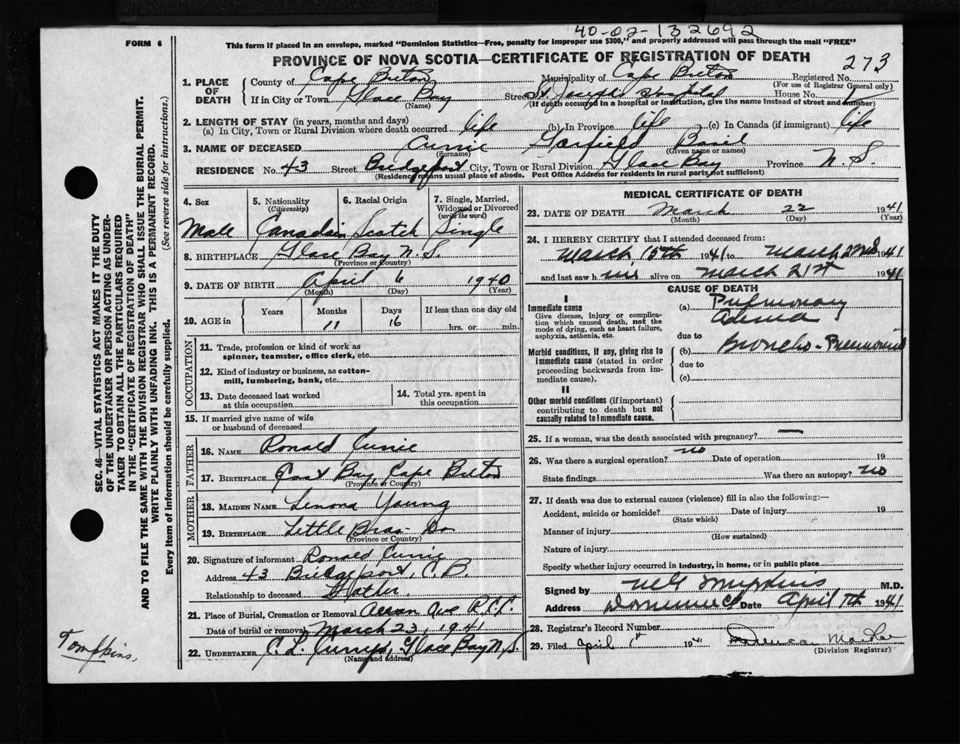 40-02-132692
FORM 6
This form if placed in an envelope, marked "Dominion Statistics—Free, penalty for improper use $300," and properly addressed will pass through the mail "FREE"
PROVINCE OF NOVA SCOTIA—CERTIFICATE OF REGISTRATION OF DEATH
273
1. PLACE OF DEATH
County of Cape Breton Municipality of Cape Breton Registered No.
(For use of Registrar General only)
If in City or Town Glace Bay Street St Joseph Hospital House No.
(Name) (If death occurred in a hospital or institution, give the name instead of street and number)
2. LENGTH OF STAY (in years, months and days)
(a) In City, Town or Rural Division where death occurred life (b) In Province life (c) In Canada (if immigrant) life
3. NAME OF DECEASED Currie Garfield Basil
(Surname) (Given name or names)
RESIDENCE No. 43 Street Bridgeport City, Town or Rural Division Glace Bay Province N.S.
(Residence means usual place of abode. Post Office Address for residents in rural parts not sufficient)
4. Sex
Male
5. Nationality (Citizenship)
Canadian
6. Racial Origin
Scotch
7. Single, Married, Widowed or Divorced (write the word)
Single
8. BIRTHPLACE Glace Bay N.S.
(Province or Country)
9. DATE OF BIRTH April 6 1940
(Month) (Day) (Year)
10. AGE in
Years Months Days If less than one day old
11 16 hrs. or min.
OCCUPATION
11. Trade, profession or kind of work as spinner, teamster, office clerk, etc.
12. Kind of industry or business, as cotton-mill, lumbering, bank, etc.
13. Date deceased last worked at this occupation
14. Total yrs. spent in this occupation
15. If married give name of wife or husband of deceased
FATHER
16. NAME Ronald Currie
17. BIRTHPLACE East Bay Cape Breton
(Province or Country)
MOTHER
18. MAIDEN NAME Lenora Young
19. BIRTHPLACE Little Bras Dor
(Province or Country)
20. Signature of informant Ronald Currie
Address 43 Bridgeport, C.B.
Relationship to deceased Father
21. Place of Burial, Cremation or Removal
Date of burial or removal March 23, 1941
22. UNDERTAKER Glace Bay N.S.
(Name and address)
MEDICAL CERTIFICATE OF DEATH
23. DATE OF DEATH March 22 1941
(Month) (Day) (Year)
24. I HEREBY CERTIFY that I attended deceased from:
March 15th 1941 to March 22nd 1941
and last saw him alive on March 21st 1941
CAUSE OF DEATH
I
Immediate cause
Give disease, injury or complication which caused death, not the mode of dying, such as heart failure, asphyxia, asthenia, etc.
(a) Pulmonary
due to
Morbid conditions, if any, giving rise to immediate cause (stated in order proceeding backwards from immediate cause).
(b) Broncho-Pneumonia
due to
(c)
II
Other morbid conditions (if important) contributing to death but not causally related to immediate cause.
25. If a woman, was the death associated with pregnancy? —
26. Was there a surgical operation? no Date of operation 19
State findings Was there an autopsy? no
27. If death was due to external causes (violence) fill in also the following:—
Accident, suicide or homicide? Date of injury 19
(State which)
Manner of injury
(How sustained)
Nature of injury
Specify whether injury occurred in industry, in home, or in public place
Signed by Tompkins M.D.
Address Dominion C.B. Date April 1941
28. Registrar's Record Number
29. Filed April 1st 1941 Duncan
(Division Registrar)
SEC. 46—VITAL STATISTICS ACT MAKES IT THE DUTY
OF THE UNDERTAKER OR PERSON ACTING AS UNDERTAKER TO OBTAIN ALL THE PARTICULARS REQUIRED
IN THE "CERTIFICATE OF REGISTRATION OF DEATH"
AND TO FILE THE SAME WITH THE DIVISION REGISTRAR WHO SHALL ISSUE THE BURIAL PERMIT.
WRITE PLAINLY WITH UNFADING INK. THIS IS A PERMANENT RECORD.
Every item of information should be carefully supplied. (See reverse side for instructions.)
Tompkins,